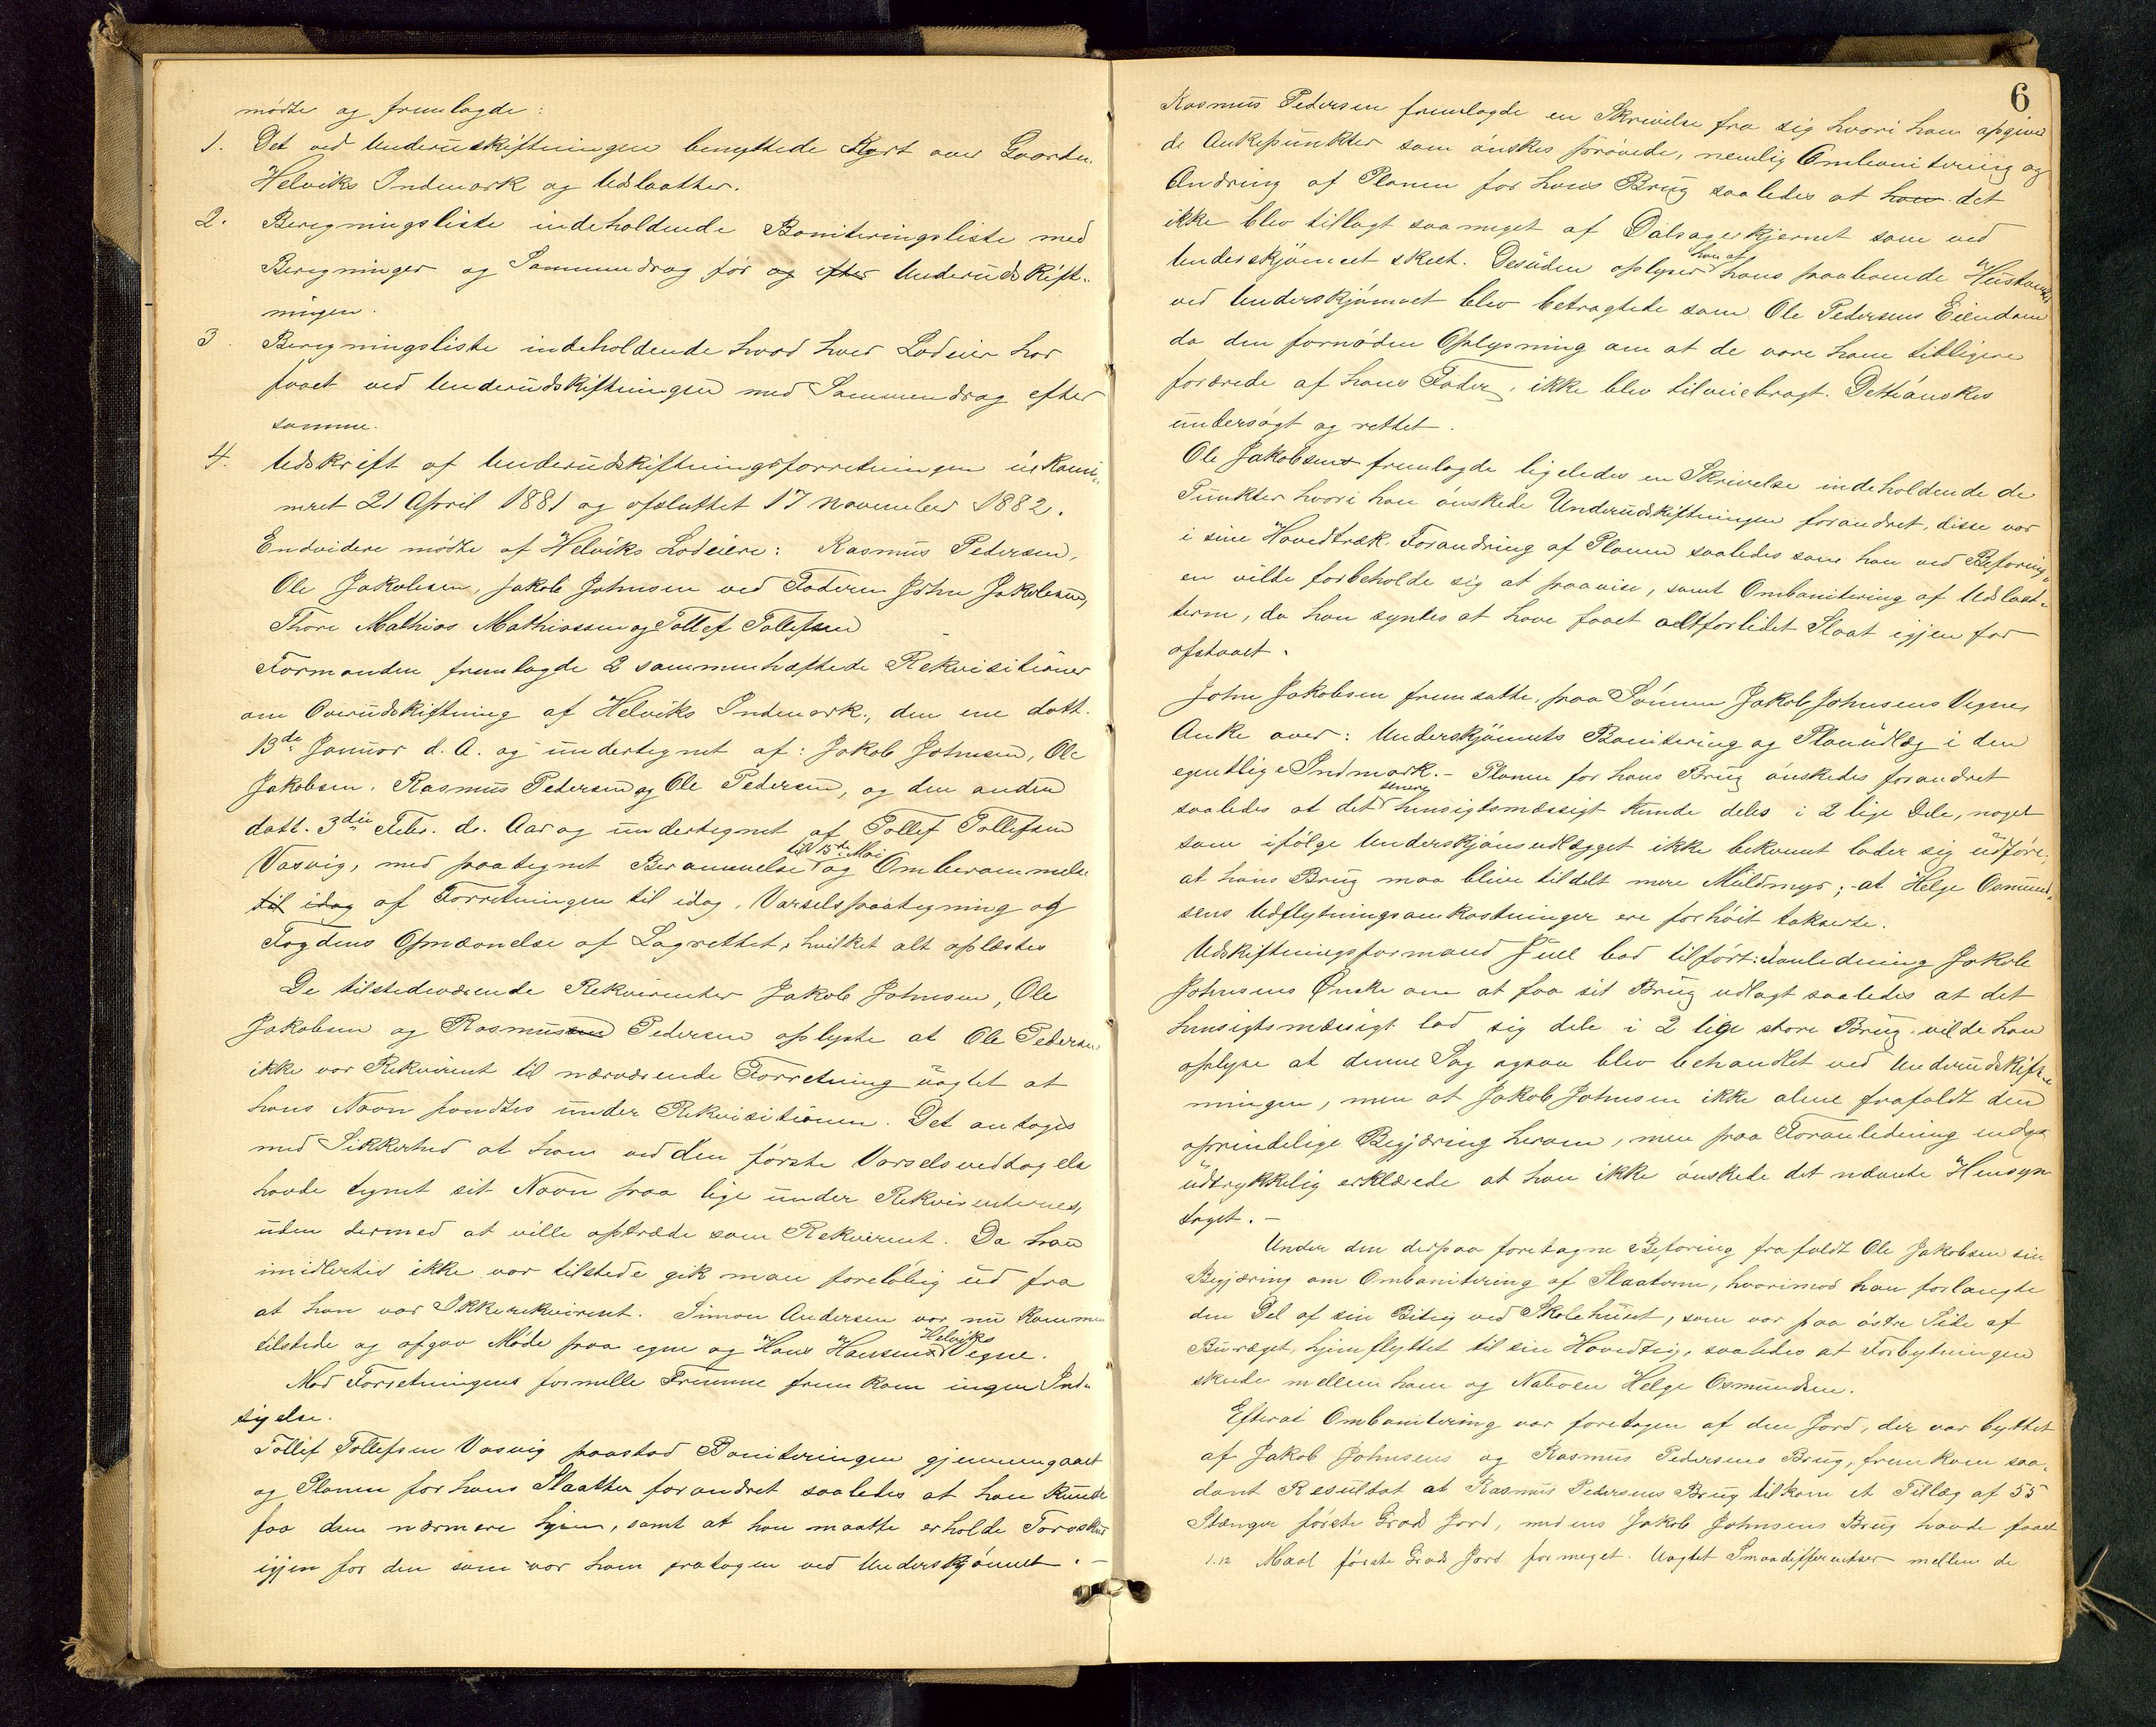 mødte og fremlagde:
1. Det ved Underudskiftningen benyttede Kort over Gaarden
Helviks Indmark og Udslaatter.
2. Beregningsliste indeholdende Boniteringsliste med
Beregninger og Sammendrag før og efter Underudskift-
ningen.
3. Beregningsliste indeholdende hvad hver Lodeier har
faaet ved Underudskiftningen med Sammendrag efter
samme.
4. Udskrift af Underudskiftningsforretningen
21 April 1881 og afsluttet 17 November 1882.
Endvidere mødte af Helviks Lodeiere: Rasmus Pedersen,
Ole Jakobsen, Jakob Johnsen ved Faderen John Jakobsen,
Thore Mathias Mathiassen og Tollef Tollefsen
Formanden fremlagde 2 sammenhæftede Rekvisitioner
om Overudskiftning af Helviks Indmark, den ene datt.
13de Januar d. A. og undertegnet af: Jakob Johnsen, Ole
Jakobsen, Rasmus Pedersen og Ole Pedersen, og den anden
datt. 3die Febr. ds. Aar og undertegnet af Tollef Tollefsen
Vasvig, med paategnet Berammelse til 15de Mai og Omberammelse
til idag af Forretningen til idag, Varselspaategning og
Fogdens Opnævnelse af Lagrettet, hvilket alt oplæstes
De tilstedeværende Rekvirenter Jakob Johnsen, Ole
Jakobsen og Rasmussen Pedersen oplyste at Ole Pedersen
ikke var Rekvirent til nærværende Forretning uagtet at
hans Navn fandtes under Rekvisitionen. Det antoges
med Sikkerhed at han ved den første Varselsvedtagelse
havde tegnet sit Navn paa lige under Rekvirenternes,
uden dermed at ville optræde som Rekvirent. Da han
imidlertid ikke var tilstede gik man foreløbig ud fra
at han var Ikkerekvirent. Simon Andersen var nu kommen
tilstede og afgav Møde paa egne og Hans Hansens Helviks Vegne.
Mod Forretningens formelle Fremme fremkom ingen Ind-
sigelse.
Tollif Tollefsen Vasvig paastod Boniteringen gjennemgaaet
og Planen for hans Slaatter forandret saaledes at han kunde
faa dem nærmere hjem, samt at han maatte erholde Torvskur
igjen for den som var ham fratagen ved Underskjønnet. –
6
Rasmus Pedersen fremlagde en Skrivelse fra sig hvori han opgiver
de Ankepunkter som ønskes prøvede, nemlig Ombonitering og
Ændring af Planen for hans Brug saaledes at han det
ikke blev tillagt saa meget af Dalsagerkjernet som ved
Underskjønnet skeet. Desuden oplyser han at hans paaboende Hustomter
ved Underskjønnet blev betragtede som Ole Pedersens Eiendom
da den fornøden Oplysning om at de vare ham tidligere
forærede af hans Fader, ikke blev tilveiebragt. Dette ønskes
undersøgt og rettet.
Ole Jakobsen fremlagde ligeledes en Skrivelse indeholdende de
Punkter hvori han ønskede Underudskiftningen forandret, disse var
i sine Hovedtræk. Forandring af Planen saaledes som han ved Befaring-
en vilde forbeholde sig at paavise, samt Ombonitering af Udslaat-
terne, da han syntes at have faaet altfor lidet Slaat igjen for
afstaaet.
John Jakobsen fremsatte, paa Sønnen Jakob Johnsens Vegne,
Anke over: Underskjønnets Bonitering og Planudlæg i den
egentlige Indmark. – Planen for hans Brug ønskedes forandret
saaledes at det senere hensigtsmæssigt kunde deles i 2 lige Dele, noget
som ifølge Underskjønsudlægget ikke bekvemt lader sig udføre;
at hans Brug maa blive tildelt mere Muldmyr; – at Helge Osmund-
sens Udflytningsomkostninger ere for høit takserte.
Udskiftningsformand Juel bad tilført: I Anledning Jakob
Johnsens Ønske om at faa sit Brug udlagt saaledes at det
hensigtsmæssigt lod sig dele i 2 lige store Brug vilde han
oplyse at denne Sag ogsaa blev behandlet ved Underudskift-
ningen, men at Jakob Johnsen ikke alene frafaldt den
oprindelige Begjæring herom, men paa Foranledning endog
udtrykkelig erklærede at han ikke ønskede det nævnte Hensyn
taget. –
Under den derpaa foretagne Befaring frafaldt Ole Jakobsen sin
Begjæring om Ombonitering af Slaatterne, hvorimod han forlangte
den Del af sin Biteig ved Skolehuset, som var paa østre Side af
hjemflyttet til sin Hovedteig, saaledes at Forbytningen
skede mellem ham og Naboen Helge Osmundsen.
Efterat Ombonitering var foretagen af den Jord, der var byttet
af Jakob Johnsens og Rasmus Pedersens Brug, fremkom saa-
dant Resultat at Rasmus Pedersens Brug tilkom et Tillæg af 55
Stænger første Grads Jord, medens Jakob Johnsens Brug havde faaet
1.12 Maal første Grads Jord for meget. Uagtet Smaadifferentser mellem de